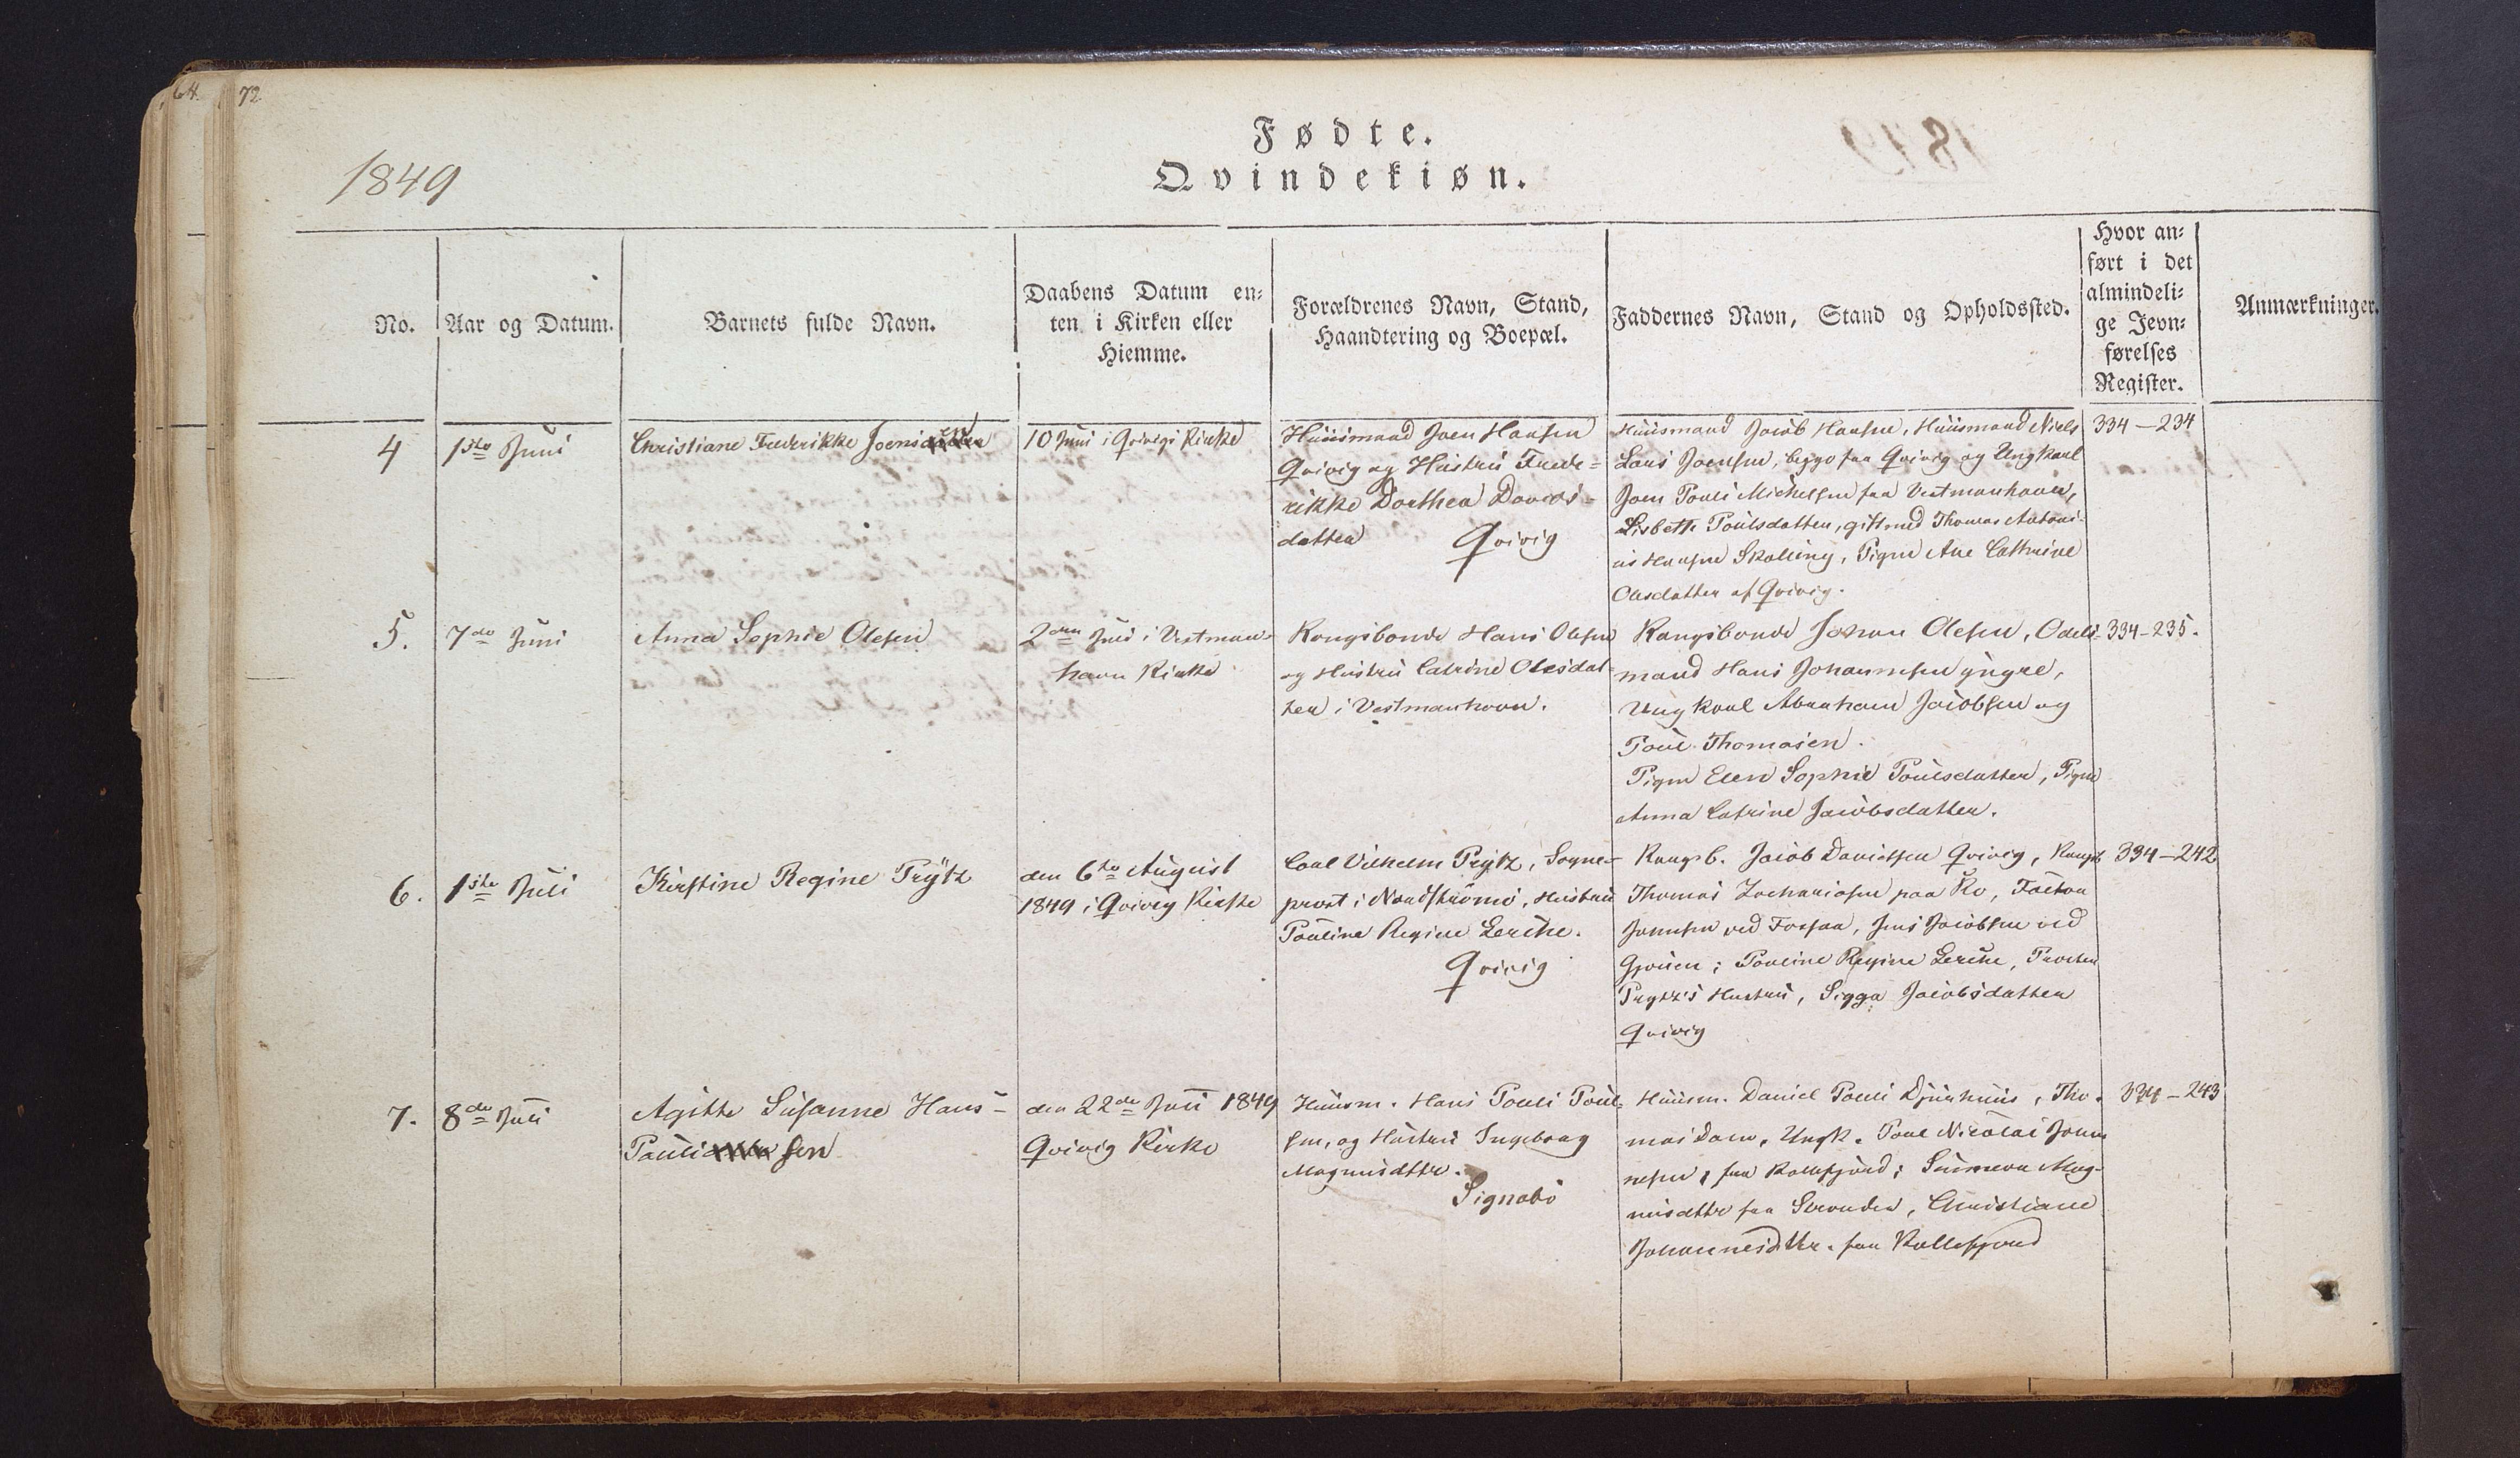 64.
72
Fødte.
Qvindekiøn.
1849
No.
Aar og Datum.
Barnets fulde Navn.
Daabens Datum en-
ten i Kirken eller
Hiemme.
Forældrenes Navn, Stand,
Haandtering og Boepæl.
Faddernes Navn, Stand og Opholdssted.
Hvor an-
ført i det
almindeli-
ge Jevn-
førelses
Register.
Anmærkninger.
4
1ste Juni
Christiane Frederikke Joensen
10 Juni i Qvivigs Kirke
Huusmand Joen Hansen
Qvivig og Hustru Frede-
rikke Dorthea Davids-
datter
Qvivig
Huusmand Jacob Hansen, Huusmand Niels
Lars Joensen, begge fra Qvivig og Ungkarl
Joen Pouli Michelsen fra Vestmanhavn,
Lisbeth Poulsdatter, gift med Thomas Antoni-
us Hansen Skælling, Pigen Ane Cathrine
Olesdatter af Qvivig.
334-234
5.
7de Juni
Anna Sophie Olesen
2den Juli i Vestman-
havn Kirke
Kongsbonde Hans Olesen
og Hustru Catrine Olesdat-
ter i Vestmanhavn.
Kongsbonde Johan Olesen, Odels-
mand Hans Johannesen yngre,
Ungkarl Abraham Jacobsen og
Poul Thomasen.
Pigen Elen Sophie Poulsdatter, Pigen
Anna Catrine Jacobsdatter.
334-235.
6.
1ste Juli
Kirstine Regine Prÿtz
den 6te August
1849 i Qvivig Kirke
Carl Vilhelm Prÿtz, Sogne-
prest i Nordstrømø, Hustru
Pauline Regine Lerche.
Qvivig
Kongsb. Jacob Davidsen Qvivig, Kongsb.
Thomas Zachariasen paa
Joensen ved Fossaa, Jens Jacobsen ved
Gjouen; Pauline Regine Lerche, Presten
Prytz's Hustru, Sigga Jacobsdatter
Qvivig
334-242
7.
8de Juli
Agithe Susanne Hans-
Paulisen
den 22de Juli 1849
Qvivig Kirke
Huusm. Hans Pouli Poul-
sen, og Hustru Ingeborg
Magnusdttr.
Signabö
Huusm. Daniel Pouli Djurhuus, Tho-
mas Dam, Ungk. Poul Nicolai Joen-
nesen, fra Kollefjord; Sunneva Mag-
nusdttr fra Selvnders, Christiane
Johannesdttr. fra Kollefjord
334-243